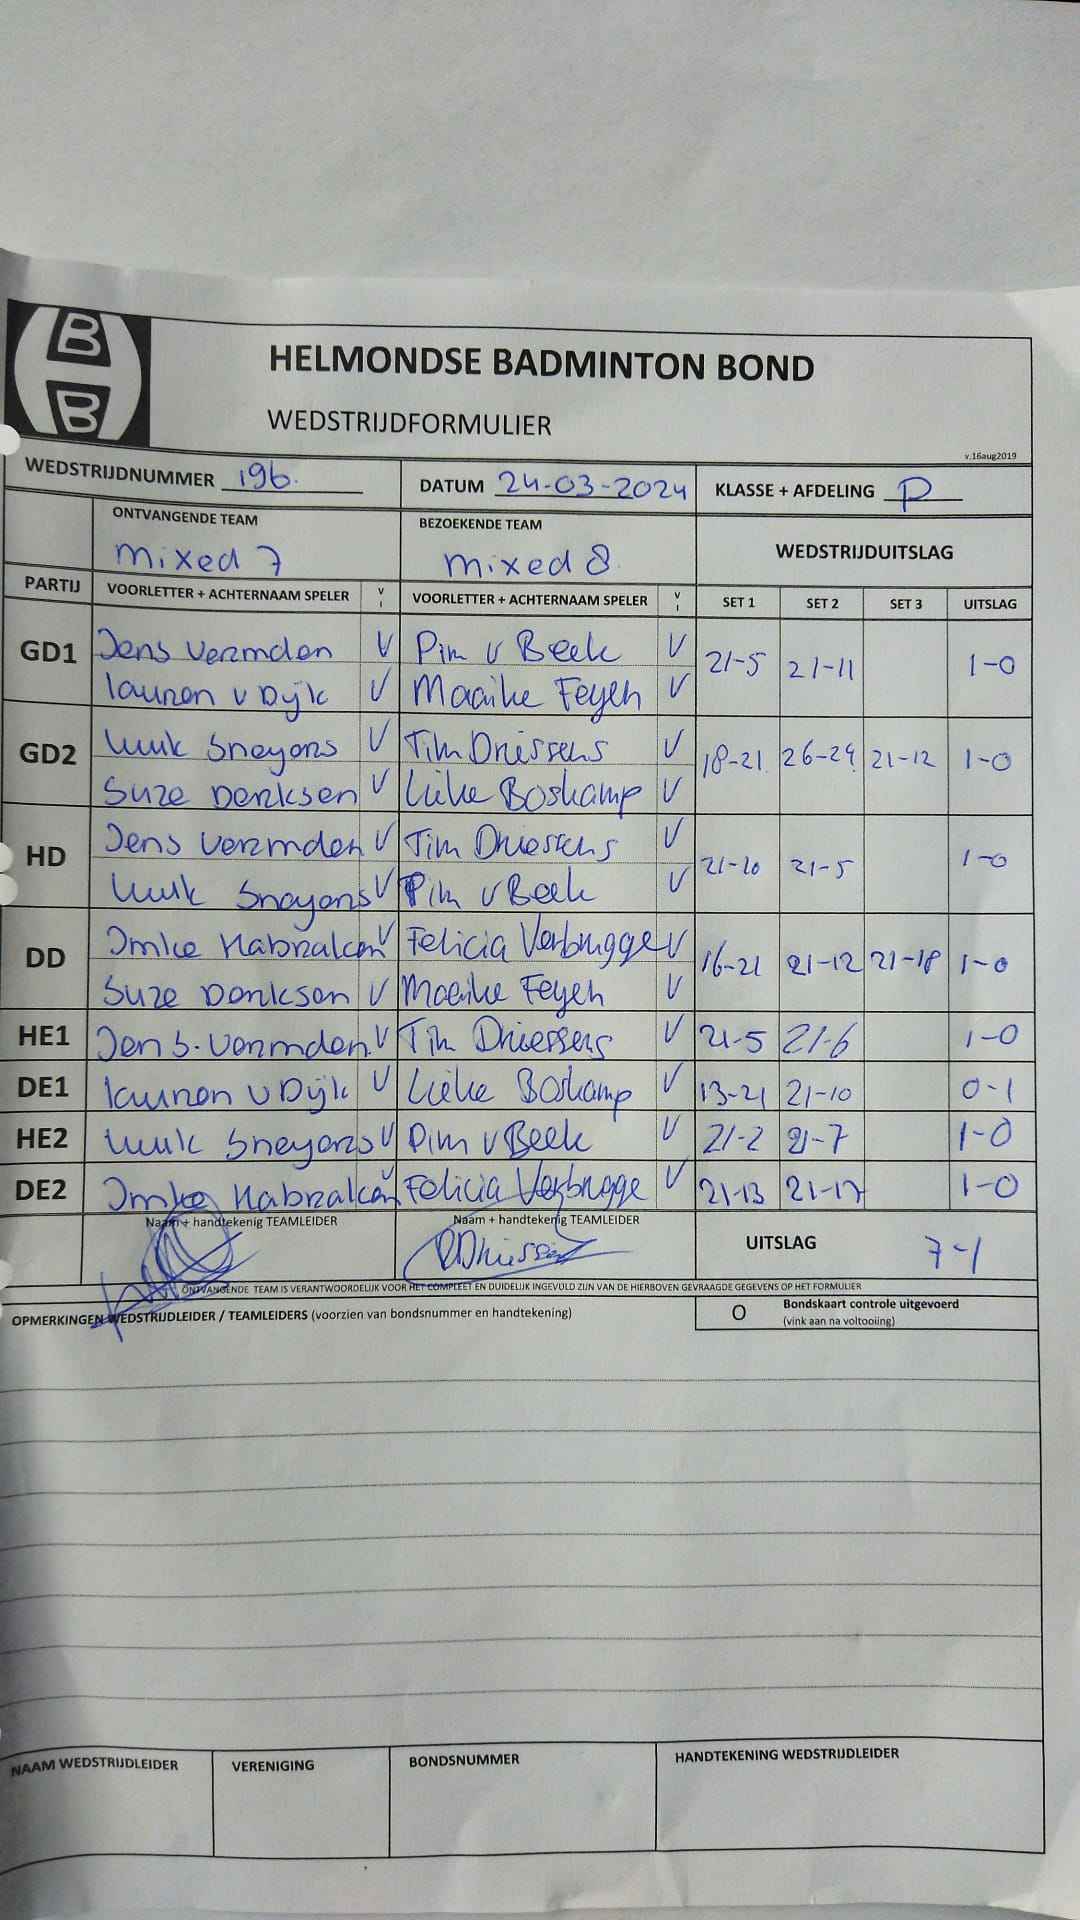 HELMONDSE BADMINTON BOND
WEDSTRIJDFORMULIER
v.16aug2019
WEDSTRIJDNUMMER 196. DATUM 24-03-2024 KLASSE + AFDELING P
ONTVANGENDE TEAM BEZOEKENDE TEAM WEDSTRIJDUITSLAG
mixed 7 mixed 8.
PARTIJ VOORLETTER + ACHTERNAAM SPELER V I VOORLETTER + ACHTERNAAM SPELER V I SET 1 SET 2 SET 3 UITSLAG
GD1 Jens Vermden V Pim v Beek V 21-5 21-11 1-0
Lauren v Dijk V Maaike Feyen V
GD2 Luuk Sneyers V Tim Driessens V 18-21 26-24 21-12 1-0
Suze Derksen V Lieke Boskamp V
HD Jens Vermden V Tim Driessens V 21-10 21-5 1-0
Luuk Sneyers V Pim v Beek V
DD Imke V Felicia Verbrugge V 16-21 21-12 21-18 1-0
Suze Derksen V Maaike Feyen V
HE1 Jens. Vermden V Tim Driessens V 21-5 21-6 1-0
DE1 Lauren v Dijk V Lieke Boskamp V 13-21 21-10 0-1
HE2 Luuk Sneyers V Pim v Beek V 21-2 21-7 1-0
DE2 Imke V Felicia Verbrugge V 21-13 21-17 1-0
Naam + handtekenig TEAMLEIDER Naam + handtekenig TEAMLEIDER UITSLAG 7-1
ONTVANGENDE TEAM IS VERANTWOORDELIJK VOOR HET COMPLEET EN DUIDELIJK INGEVULD ZIJN VAN DE HIERBOVEN GEVRAAGDE GEGEVENS OP HET FORMULIER
OPMERKINGEN WEDSTRIJDLEIDER / TEAMLEIDERS (voorzien van bondsnummer en handtekening) O Bondskaart controle uitgevoerd
(vink aan na voltooiing)
NAAM WEDSTRIJDLEIDER VERENIGING BONDSNUMMER HANDTEKENING WEDSTRIJDLEIDER